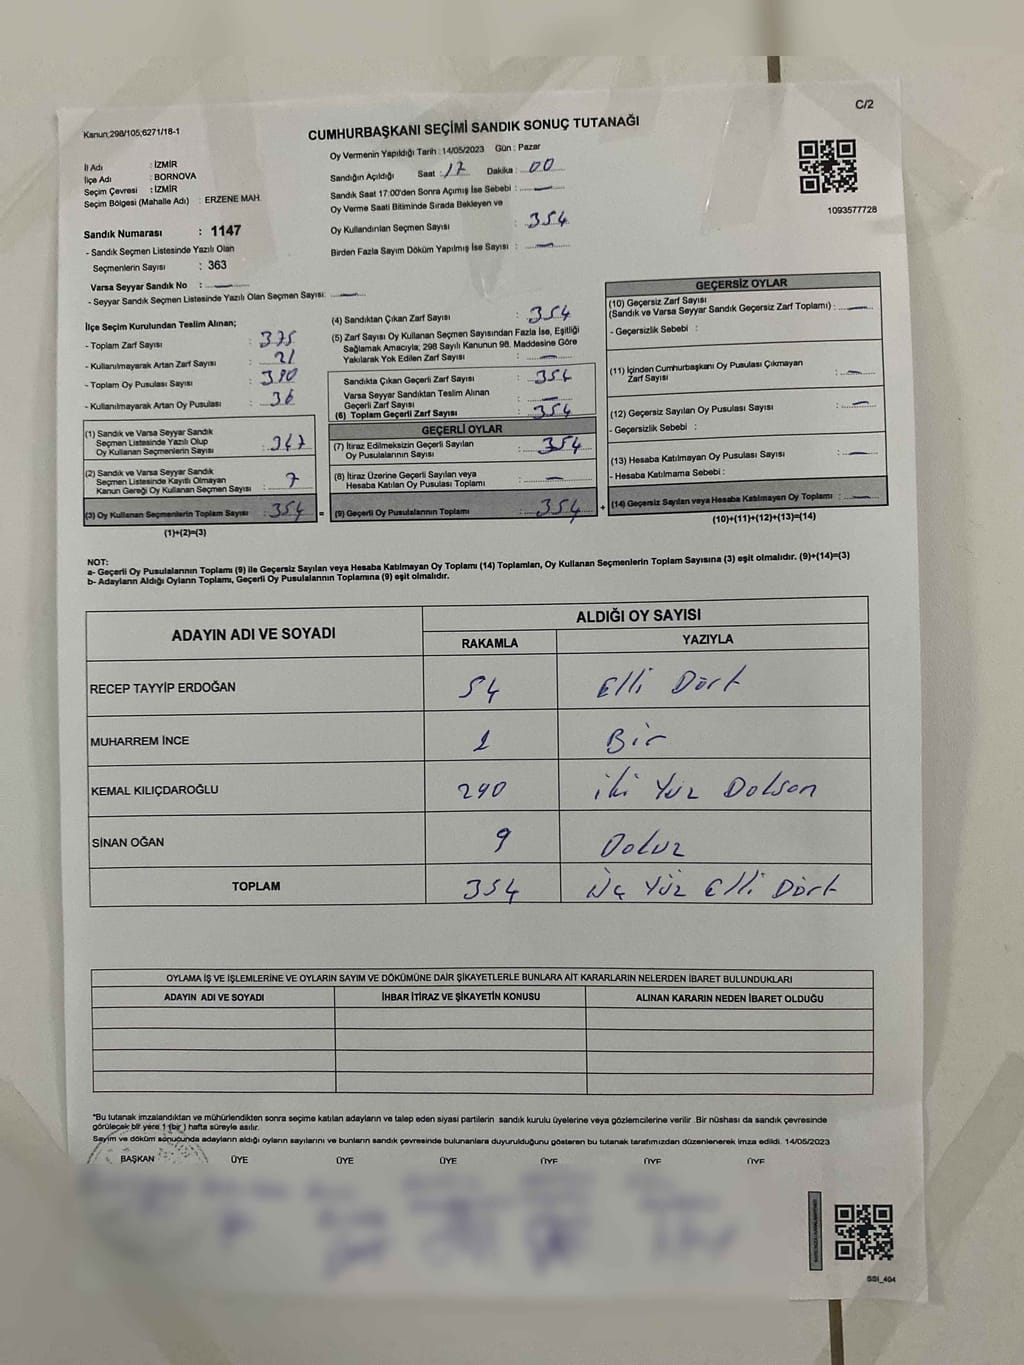 C/2
Kanun;298/105;6271/18-1
CUMHURBAŞKANI SEÇİMİ SANDIK SONUÇ TUTANAĞI
İl Adı : İZMİR
İlçe Adı : BORNOVA
Seçim Çevresi : İZMİR
Seçim Bölgesi (Mahalle Adı) : ERZENE MAH.
Oy Vermenin Yapıldığı Tarih : 14/05/2023 Gün : Pazar
Sandığın Açıldığı Saat : 17 Dakika : 00
Sandık Saat 17:00'den Sonra Açımış İse Sebebi : —
Oy Verme Saati Bitiminde Sırada Bekleyen ve
Oy Kullandırılan Seçmen Sayısı : 354
Birden Fazla Sayım Döküm Yapılmış İse Sayısı : —
1093577728
Sandık Numarası : 1147
- Sandık Seçmen Listesinde Yazılı Olan
Seçmenlerin Sayısı : 363
Varsa Seyyar Sandık No : —
- Seyyar Sandık Seçmen Listesinde Yazılı Olan Seçmen Sayısı: —
İlçe Seçim Kurulundan Teslim Alınan;
- Toplam Zarf Sayısı : 375
- Kullanılmayarak Artan Zarf Sayısı : 21
- Toplam Oy Pusulası Sayısı : 390
- Kullanılmayarak Artan Oy Pusulası : 36
(1) Sandık ve Varsa Seyyar Sandık
Seçmen Listesinde Yazılı Olup
Oy Kullanan Seçmenlerin Sayısı : 347
(2) Sandık ve Varsa Seyyar Sandık
Seçmen Listesinde Kayıtlı Olmayan
Kanun Gereği Oy Kullanan Seçmen Sayısı : 7
(3) Oy Kullanan Seçmenlerin Toplam Sayısı : 354 =
(1)+(2)=(3)
(4) Sandıktan Çıkan Zarf Sayısı : 354
(5) Zarf Sayısı Oy Kullanan Seçmen Sayısından Fazla İse, Eşitliği
Sağlamak Amacıyla; 298 Sayılı Kanunun 98. Maddesine Göre
Yakılarak Yok Edilen Zarf Sayısı : —
Sandıkta Çıkan Geçerli Zarf Sayısı : 354
Varsa Seyyar Sandıktan Teslim Alınan
Geçerli Zarf Sayısı : —
(6) Toplam Geçerli Zarf Sayısı : 354
GEÇERLİ OYLAR
(7) İtiraz Edilmeksizin Geçerli Sayılan
Oy Pusulalarının Sayısı : 354
(8) İtiraz Üzerine Geçerli Sayılan veya
Hesaba Katılan Oy Pusulası Toplamı : —
(9) Geçerli Oy Pusulalarının Toplamı : 354 +
GEÇERSİZ OYLAR
(10) Geçersiz Zarf Sayısı
(Sandık ve Varsa Seyyar Sandık Geçersiz Zarf Toplamı) : —
- Geçersizlik Sebebi :
(11) İçinden Cumhurbaşkanı Oy Pusulası Çıkmayan
Zarf Sayısı : —
(12) Geçersiz Sayılan Oy Pusulası Sayısı : —
- Geçersizlik Sebebi :
(13) Hesaba Katılmayan Oy Pusulası Sayısı : —
- Hesaba Katılmama Sebebi :
(14) Geçersiz Sayılan veya Hesaba Katılmayan Oy Toplamı : —
(10)+(11)+(12)+(13)=(14)
NOT:
a- Geçerli Oy Pusulalarının Toplamı (9) ile Geçersiz Sayılan veya Hesaba Katılmayan Oy Toplamı (14) Toplamları, Oy Kullanan Seçmenlerin Toplam Sayısına (3) eşit olmalıdır. (9)+(14)=(3)
b- Adayların Aldığı Oyların Toplamı, Geçerli Oy Pusulalarının Toplamına (9) eşit olmalıdır.
ADAYIN ADI VE SOYADI ALDIĞI OY SAYISI
RAKAMLA YAZIYLA
RECEP TAYYİP ERDOĞAN 54 Elli Dört
MUHARREM İNCE 1 Bir
KEMAL KILIÇDAROĞLU 290 iki Yüz Doksan
SİNAN OĞAN 9 Dokuz
TOPLAM 354 Üç Yüz Elli Dört
OYLAMA İŞ VE İŞLEMLERİNE VE OYLARIN SAYIM VE DÖKÜMÜNE DAİR ŞİKAYETLERLE BUNLARA AİT KARARLARIN NELERDEN İBARET BULUNDUKLARI
ADAYIN ADI VE SOYADI İHBAR İTİRAZ VE ŞİKAYETİN KONUSU ALINAN KARARIN NEDEN İBARET OLDUĞU
*Bu tutanak imzalandıktan ve mühürlendikten sonra seçime katılan adayların ve talep eden siyasi partilerin sandık kurulu üyelerine veya gözlemcilerine verilir. Bir nüshası da sandık çevresinde
görülecek bir yere 1 (bir ) hafta süreyle asılır.
Sayım ve döküm sonucunda adayların aldığı oyların sayılarını ve bunların sandık çevresinde bulunanlara duyurulduğunu gösteren bu tutanak tarafımızdan düzenlenerek imza edildi. 14/05/2023
BAŞKAN ÜYE ÜYE ÜYE ÜYE ÜYE ÜYE
SSI_404